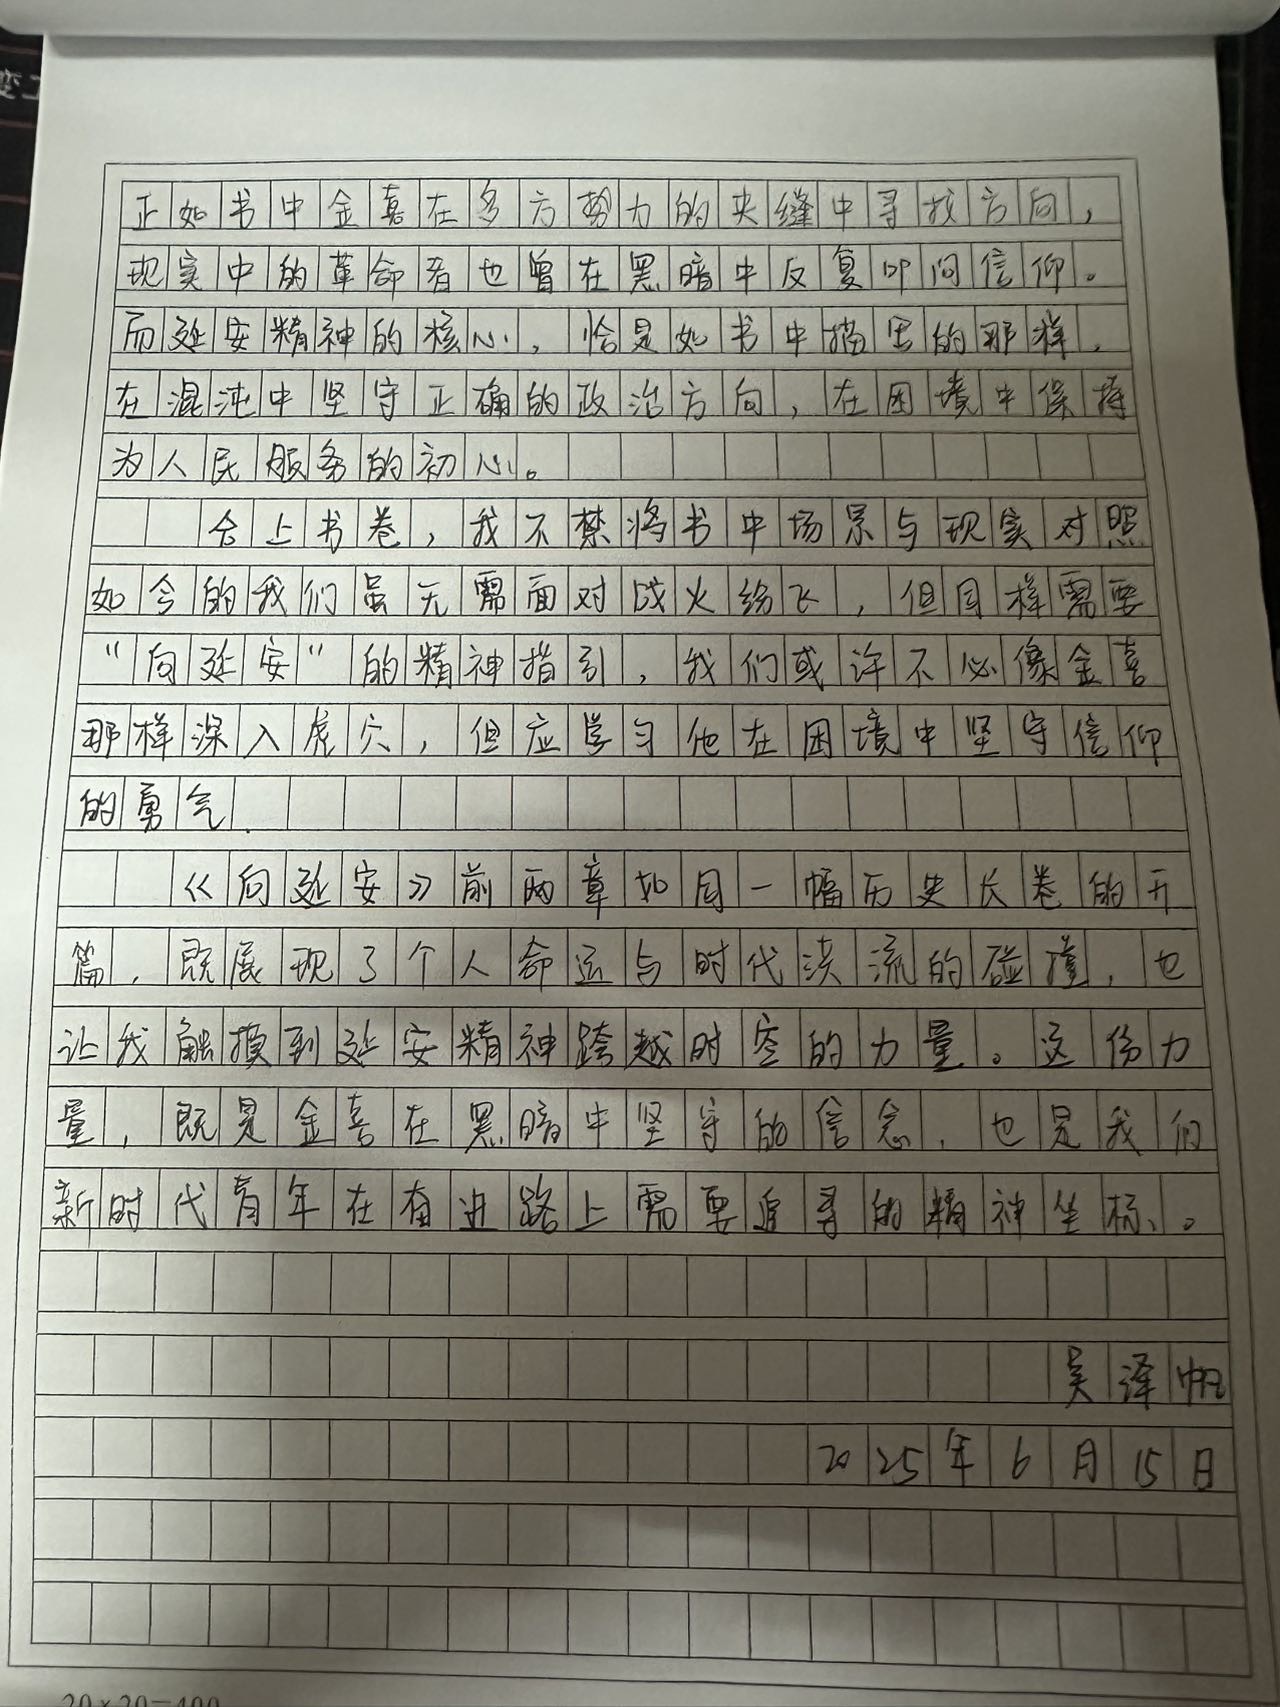 正如书中金喜在多方势力的夹缝中寻找方向，
现实中的革命者也曾在黑暗中反复叩问信仰。
而延安精神的核心，恰是如书中描写的那样，
在混沌中坚守正确的政治方向，在困境中保持
为人民服务的初心。
合上书卷，我不禁将书中场景与现实对照
如今的我们虽无需面对战火纷飞，但同样需要
“向延安”的精神指引，我们或许不必像金喜
那样深入虎穴，但应学习他在困境中坚守信仰
的勇气.
《向延安》前两章如同一幅历史长卷的开
篇，既展现了个人命运与时代洪流的碰撞，也
让我触摸到延安精神跨越时空的力量。这份力
量，既是金喜在黑暗中坚守的信念，也是我们
新时代青年在奋进路上需要追寻的精神坐标、。
吴泽帆
2025年6月15日
20×20=400